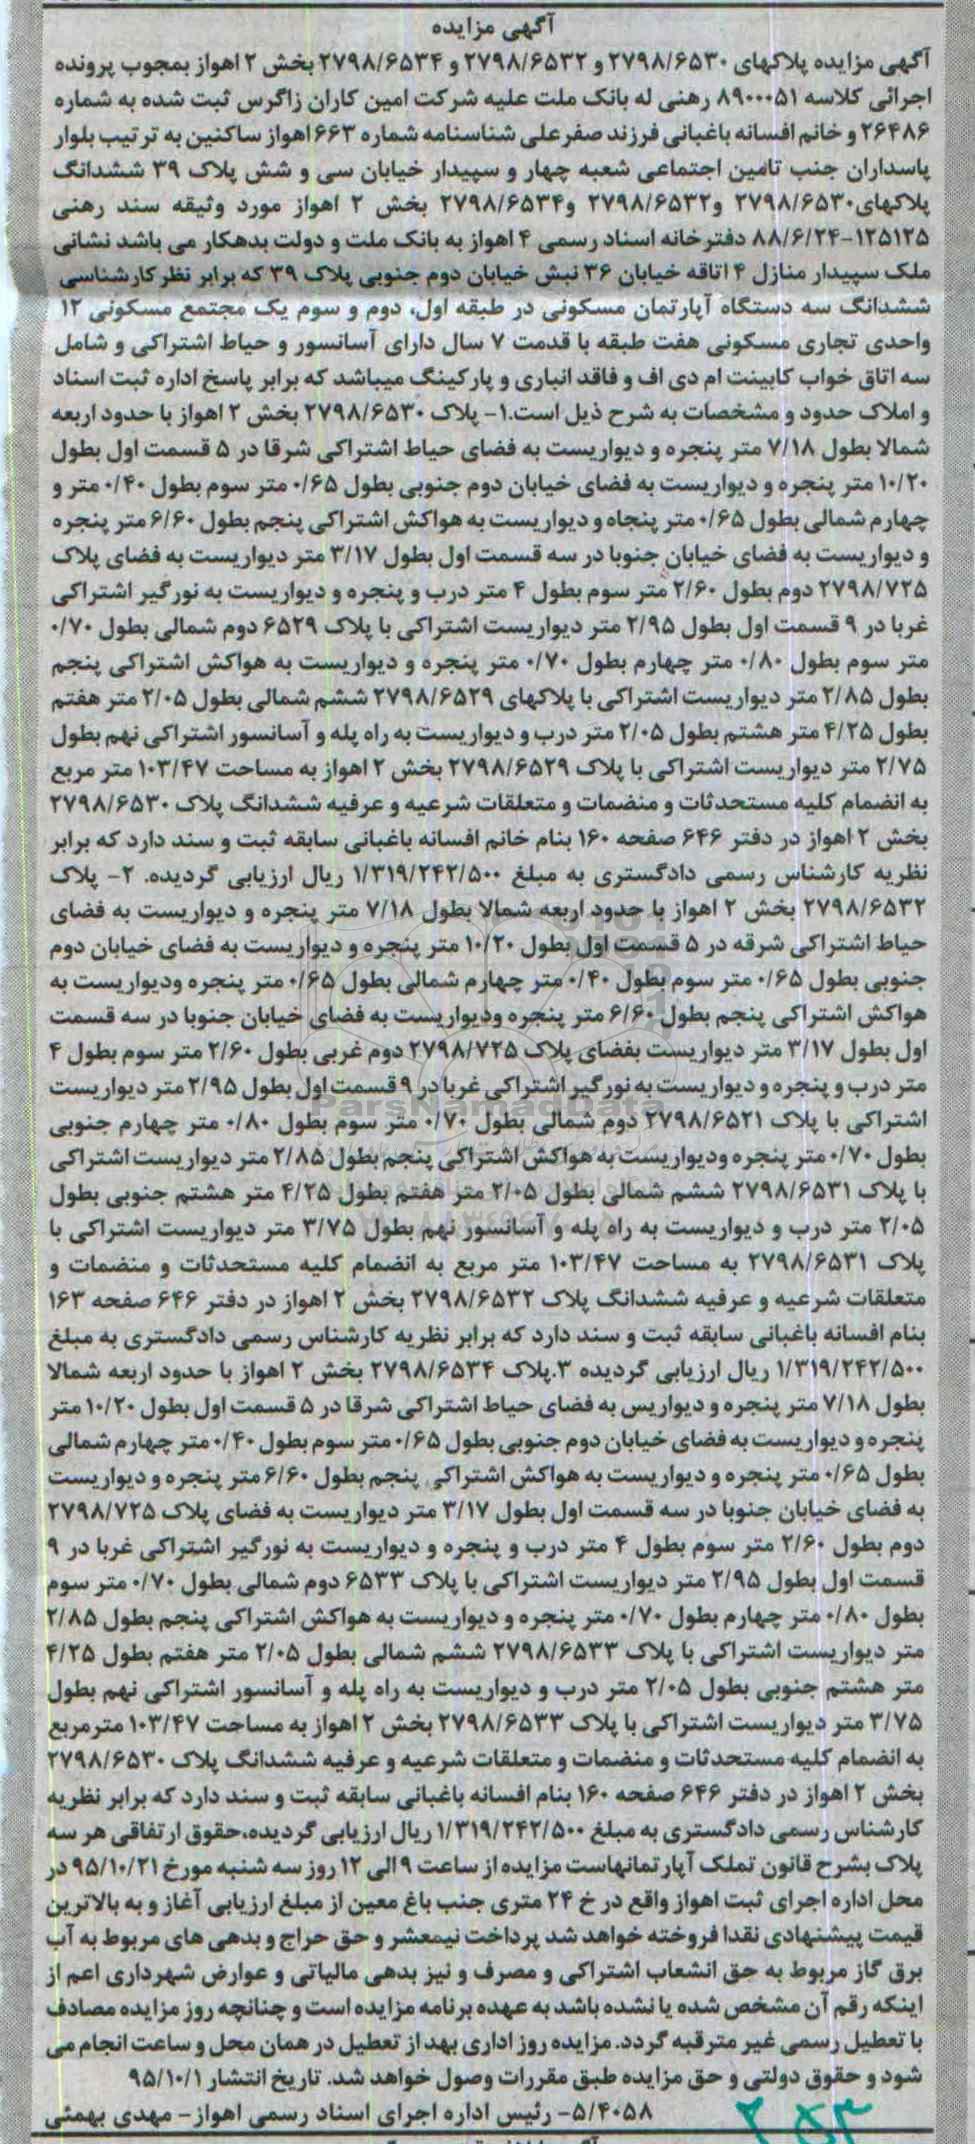 آگهی مزایده
آگهی مزایده پلاکهای ۲۷۹۸/۶۵۳۰ و ۲۷۹۸/۶۵۳۲ و ۲۷۹۸/۶۵۳۴ بخش ۲ اهواز بمجوب پرونده
اجرائی کلاسه ۸۹۰۰۰۵۱ رهنی له بانک ملت علیه شرکت امین کاران زاگرس ثبت شده به شماره
۲۶۴۸۶ و خانم افسانه باغبانی فرزند صفرعلی شناسنامه شماره ۶۶۳ اهواز ساکنین به ترتیب بلوار
پاسداران جنب تامین اجتماعی شعبه چهار و سپیدار خیابان سی و شش پلاک ۳۹ ششدانگ
پلاکهای۲۷۹۸/۶۵۳۰ و۲۷۹۸/۶۵۳۲ و۲۷۹۸/۶۵۳۴ بخش ۲ اهواز مورد وثیقه سند رهنی
۱۲۵۱۲۵-۸۸/۶/۲۴ دفترخانه اسناد رسمی ۴ اهواز به بانک ملت و دولت بدهکار می باشد نشانی
ملک سپیدار منازل ۴ اتاقه خیابان ۳۶ نبش خیابان دوم جنوبی پلاک ۳۹ که برابر نظر کارشناسی
ششدانگ سه دستگاه آپارتمان مسکونی در طبقه اول، دوم و سوم یک مجتمع مسکونی ۱۲
واحدی تجاری مسکونی هفت طبقه با قدمت ۷ سال دارای آسانسور و حیاط اشتراکی و شامل
سه اتاق خواب کابینت ام دی اف و فاقد انباری و پارکینگ میباشد که برابر پاسخ اداره ثبت اسناد
و املاک حدود و مشخصات به شرح ذیل است.۱- پلاک ۲۷۹۸/۶۵۳۰ بخش ۲ اهواز با حدود اربعه
شمالا بطول ۷/۱۸ متر پنجره و دیواریست به فضای حیاط اشتراکی شرقا در ۵ قسمت اول بطول
۱۰/۲۰ متر پنجره و دیواریست به فضای خیابان دوم جنوبی بطول ۰/۶۵ متر سوم بطول ۰/۴۰ متر و
چهارم شمالی بطول ۰/۶۵ متر پنجاه و دیواریست به هواکش اشتراکی پنجم بطول ۶/۶۰ متر پنجره
و دیواریست به فضای خیابان جنوبا در سه قسمت اول بطول ۳/۱۷ متر دیواریست به فضای پلاک
۲۷۹۸/۷۲۵ دوم بطول ۲/۶۰ متر سوم بطول ۴ متر درب و پنجره و دیواریست به نورگیر اشتراکی
غربا در ۹ قسمت اول بطول ۲/۹۵ متر دیواریست اشتراکی با پلاک ۶۵۲۹ دوم شمالی بطول ۰/۷۰
متر سوم بطول ۰/۸۰ متر چهارم بطول ۰/۷۰ متر پنجره و دیواریست به هواکش اشتراکی پنجم
بطول ۲/۸۵ متر دیواریست اشتراکی با پلاکهای ۲۷۹۸/۶۵۲۹ ششم شمالی بطول ۲/۰۵ متر هفتم
بطول ۴/۲۵ متر هشتم بطول ۲/۰۵ متر درب و دیواریست به راه پله و آسانسور اشتراکی نهم بطول
۲/۷۵ متر دیواریست اشتراکی با پلاک ۲۷۹۸/۶۵۲۹ بخش ۲ اهواز به مساحت ۱۰۳/۴۷ متر مربع
به انضمام کلیه مستحدثات و منضمات و متعلقات شرعیه و عرفیه ششدانگ پلاک ۲۷۹۸/۶۵۳۰
بخش ۲ اهواز در دفتر ۶۴۶ صفحه ۱۶۰ بنام خانم افسانه باغبانی سابقه ثبت و سند دارد که برابر
نظریه کارشناس رسمی دادگستری به مبلغ ۱/۳۱۹/۲۴۲/۵۰۰ ریال ارزیابی گردیده. ۲- پلاک
۲۷۹۸/۶۵۳۲ بخش ۲ اهواز با حدود اربعه شمالا بطول ۷/۱۸ متر پنجره و دیواریست به فضای
حیاط اشتراکی شرقه در ۵ قسمت اول بطول ۱۰/۲۰ متر پنجره و دیواریست به فضای خیابان دوم
جنوبی بطول ۰/۶۵ متر سوم بطول ۰/۴۰ متر چهارم شمالی بطول ۰/۶۵ متر پنجره ودیواریست به
هواکش اشتراکی پنجم بطول ۶/۶۰ متر پنجره ودیواریست به فضای خیابان جنوبا در سه قسمت
اول بطول ۳/۱۷ متر دیواریست بفضای پلاک ۲۷۹۸/۷۲۵ دوم غربی بطول ۲/۶۰ متر سوم بطول ۴
متر درب و پنجره و دیواریست به نورگیر اشتراکی غربا در ۹ قسمت اول بطول ۲/۹۵ متر دیواریست
اشتراکی با پلاک ۲۷۹۸/۶۵۲۱ دوم شمالی بطول ۰/۷۰ متر سوم بطول ۰/۸۰ متر چهارم جنوبی
بطول ۰/۷۰ متر پنجره ودیواریست به هواکش اشتراکی پنجم بطول ۲/۸۵ متر دیواریست اشتراکی
با پلاک ۲۷۹۸/۶۵۳۱ ششم شمالی بطول ۲/۰۵ متر هفتم بطول ۴/۲۵ متر هشتم جنوبی بطول
۲/۰۵ متر درب و دیواریست به راه پله و آسانسور نهم بطول ۳/۷۵ متر دیواریست اشتراکی با
پلاک ۲۷۹۸/۶۵۳۱ به مساحت ۱۰۳/۴۷ متر مربع به انضمام کلیه مستحدثات و منضمات و
متعلقات شرعیه و عرفیه ششدانگ پلاک ۲۷۹۸/۶۵۳۲ بخش ۲ اهواز در دفتر ۶۴۶ صفحه ۱۶۳
بنام افسانه باغبانی سابقه ثبت و سند دارد که برابر نظریه کارشناس رسمی دادگستری به مبلغ
۱/۳۱۹/۲۴۲/۵۰۰ ریال ارزیابی گردیده ۳.پلاک ۲۷۹۸/۶۵۳۴ بخش ۲ اهواز با حدود اربعه شمالا
بطول ۷/۱۸ متر پنجره و دیواریس به فضای حیاط اشتراکی شرقا در ۵ قسمت اول بطول ۱۰/۲۰ متر
پنجره و دیواریست به فضای خیابان دوم جنوبی بطول ۰/۶۵ متر سوم بطول ۰/۴۰ متر چهارم شمالی
بطول ۰/۶۵ متر پنجره و دیواریست به هواکش اشتراکی پنجم بطول ۶/۶۰ متر پنجره و دیواریست
به فضای خیابان جنوبا در سه قسمت اول بطول ۳/۱۷ متر دیواریست به فضای پلاک ۲۷۹۸/۷۲۵
دوم بطول ۲/۶۰ متر سوم بطول ۴ متر درب و پنجره و دیواریست به نورگیر اشتراکی غربا در ۹
قسمت اول بطول ۲/۹۵ متر دیواریست اشتراکی با پلاک ۶۵۳۳ دوم شمالی بطول ۰/۷۰ متر سوم
بطول ۰/۸۰ متر چهارم بطول ۰/۷۰ متر پنجره و دیواریست به هواکش اشتراکی پنجم بطول ۲/۸۵
متر دیواریست اشتراکی با پلاک ۲۷۹۸/۶۵۳۳ ششم شمالی بطول ۲/۰۵ متر هفتم بطول ۴/۲۵
متر هشتم جنوبی بطول ۲/۰۵ متر درب و دیواریست به راه پله و آسانسور اشتراکی نهم بطول
۳/۷۵ متر دیواریست اشتراکی با پلاک ۲۷۹۸/۶۵۳۳ بخش ۲ اهواز به مساحت ۱۰۳/۴۷ مترمربع
به انضمام کلیه مستحدثات و منضمات و متعلقات شرعیه و عرفیه ششدانگ پلاک ۲۷۹۸/۶۵۳۰
بخش ۲ اهواز در دفتر ۶۴۶ صفحه ۱۶۰ بنام افسانه باغبانی سابقه ثبت و سند دارد که برابر نظریه
کارشناس رسمی دادگستری به مبلغ ۱/۳۱۹/۲۴۲/۵۰۰ ریال ارزیابی گردیده،حقوق ارتفاقی هر سه
پلاک بشرح قانون تملک آپارتمانهاست مزایده از ساعت ۹ الی ۱۲ روز سه شنبه مورخ ۹۵/۱۰/۲۱ در
محل اداره اجرای ثبت اهواز واقع در خ ۲۴ متری جنب باغ معین از مبلغ ارزیابی آغاز و به بالاترین
قیمت پیشنهادی نقدا فروخته خواهد شد پرداخت نیمعشر و حق حراج و بدهی های مربوط به آب
برق گاز مربوط به حق انشعاب اشتراکی و مصرف و نیز بدهی مالیاتی و عوارض شهرداری اعم از
اینکه رقم آن مشخص شده یا نشده باشد به عهده برنامه مزایده است و چنانچه روز مزایده مصادف
با تعطیل رسمی غیر مترقبه گردد. مزایده روز اداری بهد از تعطیل در همان محل و ساعت انجام می
شود و حقوق دولتی و حق مزایده طبق مقررات وصول خواهد شد. تاریخ انتشار ۹۵/۱۰/۱
۵/۴۰۵۸- رئیس اداره اجرای اسناد رسمی اهواز- مهدی بهمئی
ParsNamadData